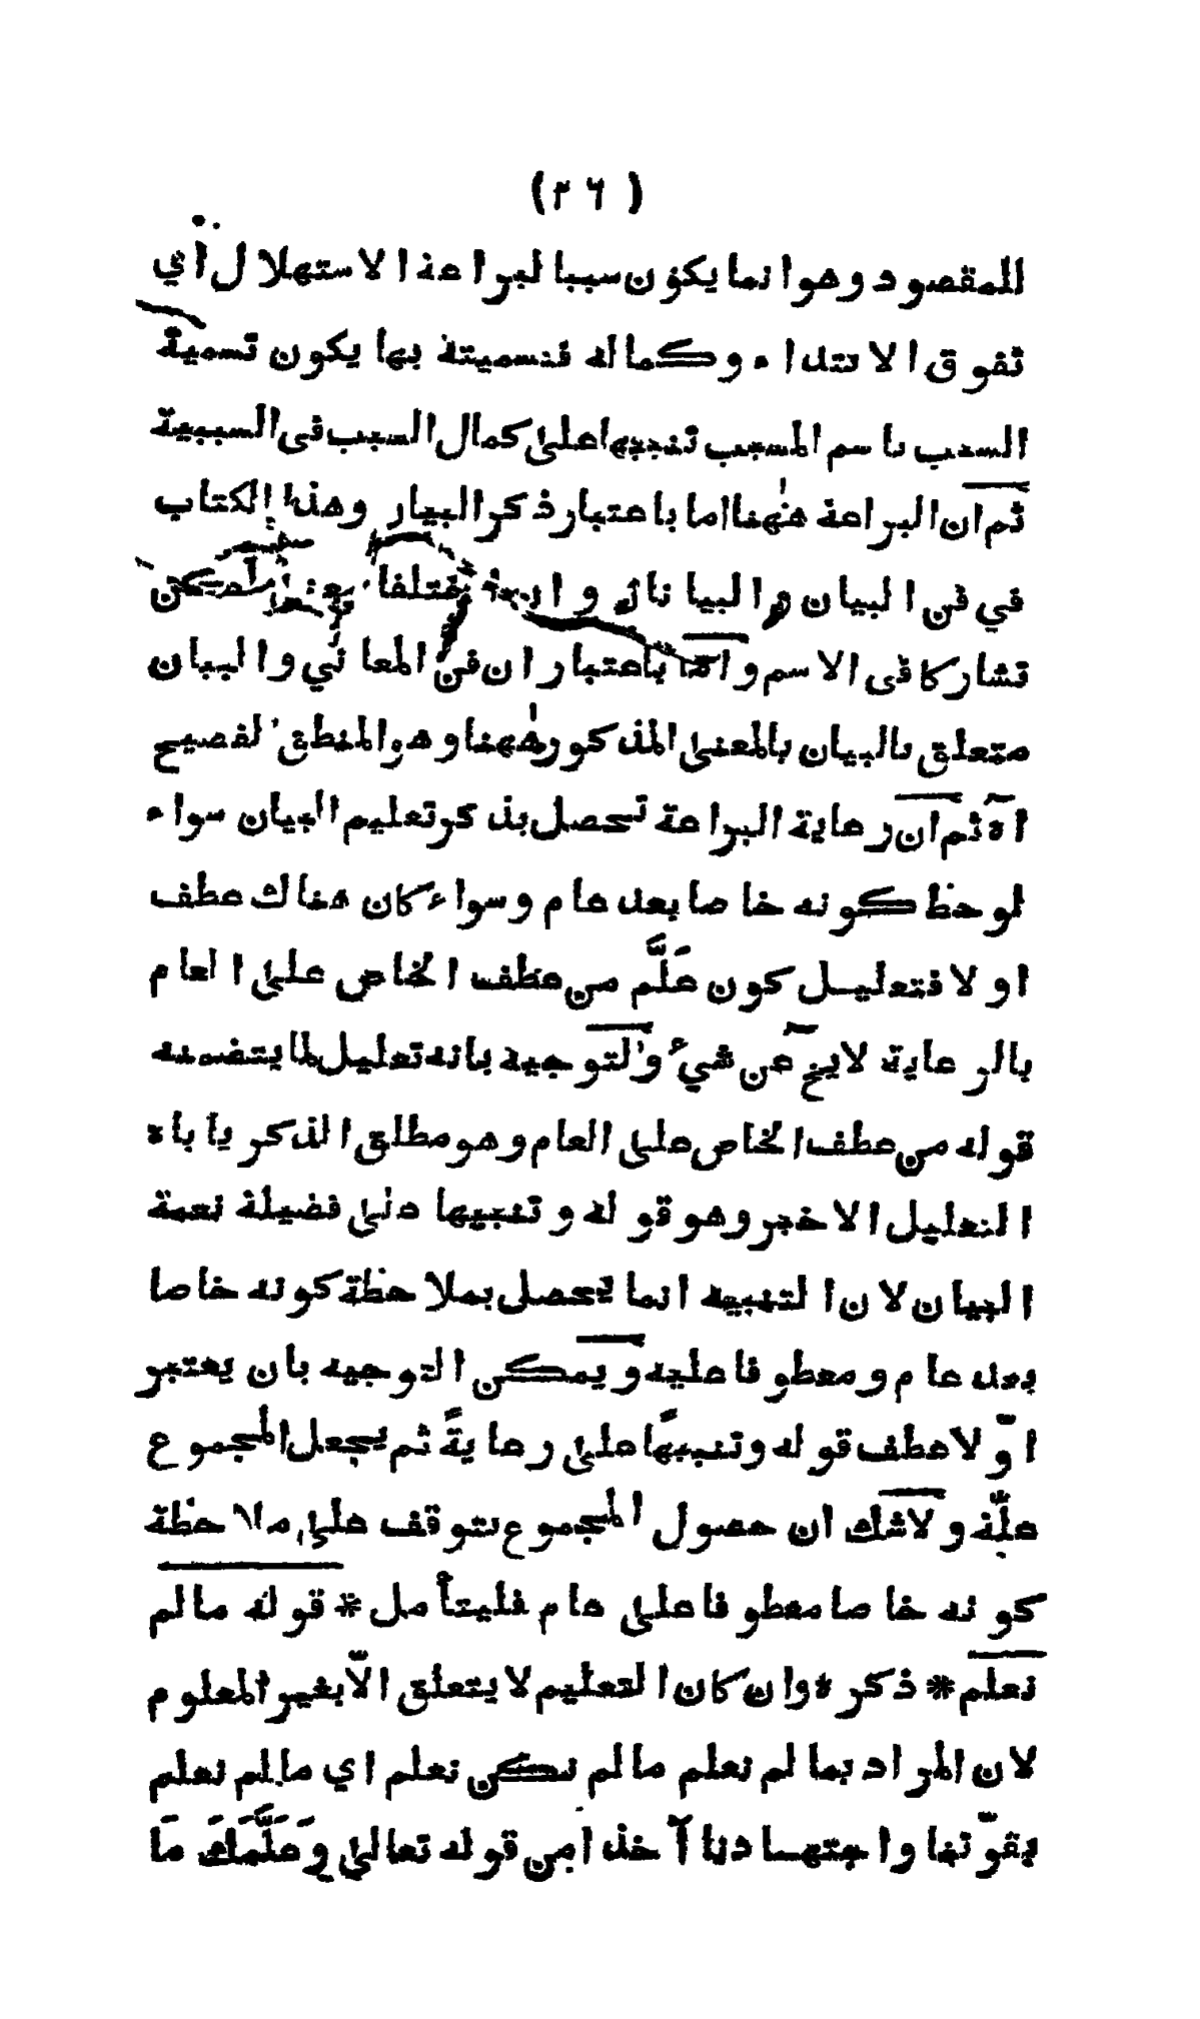 (٢٦)
للمقصود وهو انما يكون سببا لبراعة الاستهلال أي
تفوق الابتداء وكماله فتسميته بها يكون تسمية
السبب باسم المسبب تنبيها على كمال السبب فى السببية
ثم ان البراعة ههنا اما باعتبار ذكر البيان وهذا الكتاب
في فن البيان والبيانان وان مختلفا لكن
تشاركا فى الاسم واما باعتبار ان فن المعاني والبيان
متعلق بالبيان بالمعنى المذكور ههنا وهو المنطق الفصيح
اه ثم ان رعاية البراعة تحصل بذكر تعليم البيان سواء
لوحظ كونه خاصا بعد عام وسواء كان هناك عطف
اولا فتعليل كون عَلَّمَ من عطف الخاص على العام
بالرعاية لايخ عن شئ والتوجيه بانه تعليل لما يتضمنه
قوله من عطف الخاص على العام وهو مطلق الذكر يأباه
التعليل الاخير وهو قوله وتنبيها على فضيلة نعمة
البيان لان التنبيه انما يحصل بملاحظة كونه خاصا
بعد عام ومعطوفا عليه ويمكن التوجيه بان يعتبر
اوّلا عطف قوله وتنبيهاً على رعايةً ثم يجعل المجموع
علّة ولاشك ان حصول المجموع يتوقف على ملاحظة
كونه خاصا معطوفا على عام فليتأمل * قوله مالم
نعلم * ذكره وان كان التعليم لا يتعلق الّا بغير المعلوم
لان المراد بما لم نعلم مالم نكن نعلم اي مالم نعلم
بقوّتنا واجتهادنا آخذا من قوله تعالى وَعَلَّمَكَ مَا